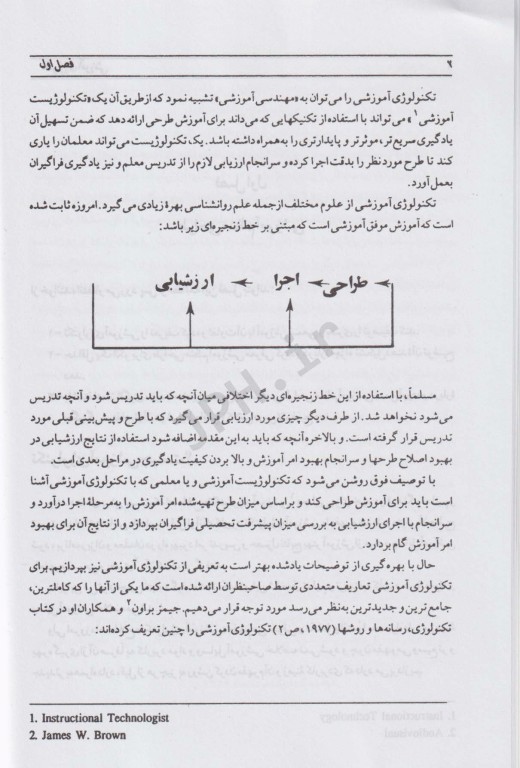 ۲
فصل اول
تکنولوژی آموزشی را می‌توان به «مهندسی آموزشی» تشبیه نمود که از طریق آن یک «تکنولوژیست
آموزشی۱» می‌تواند با استفاده از تکنیکهایی که می‌داند برای آموزش طرحی ارائه دهد که ضمن تسهیل آن
یادگیری سریع‌تر، موثرتر و پایدارتری را به همراه داشته باشد. یک تکنولوژیست می‌تواند معلمان را یاری
کند تا طرح مورد نظر را بدقت اجرا کرده و سرانجام ارزیابی لازم را از تدریس معلم و نیز یادگیری فراگیران
بعمل آورد.
تکنولوژی آموزشی از علوم مختلف از جمله علم روانشناسی بهرهٔ زیادی می‌گیرد. امروزه ثابت شده
است که آموزش موفق آموزشی است که مبتنی بر خط زنجیره‌ای زیر باشد:
طراحی ← اجرا ← ارزشیابی
مسلماً، با استفاده از این خط زنجیره‌ای دیگر اختلافی میان آنچه که باید تدریس شود و آنچه تدریس
می‌شود نخواهد شد. از طرف دیگر چیزی مورد ارزیابی قرار می‌گیرد که با طرح و پیش‌بینی قبلی مورد
تدریس قرار گرفته است. و بالاخره آنچه که باید به این مقدمه اضافه شود استفاده از نتایج ارزشیابی در
بهبود اصلاح طرحها و سرانجام بهبود امر آموزش و بالا بردن کیفیت یادگیری در مراحل بعدی است.
با توصیف فوق روشن می‌شود که تکنولوژیست آموزشی و یا معلمی که با تکنولوژی آموزشی آشنا
است باید برای آموزش طراحی کند و براساس میزان طرح تهیه شده امر آموزش را به مرحلهٔ اجرا درآورد و
سرانجام با اجرای ارزشیابی به بررسی میزان پیشرفت تحصیلی فراگیران بپردازد و از نتایج آن برای بهبود
امر آموزش گام بردارد.
حال با بهره‌گیری از توضیحات یادشده بهتر است به تعریفی از تکنولوژی آموزشی نیز بپردازیم. برای
تکنولوژی آموزشی تعاریف متعددی توسط صاحبنظران ارائه شده است که ما یکی از آنها را که کاملترین،
جامع‌ترین و جدیدترین به نظر می‌رسد مورد توجه قرار می‌دهیم. جیمز براون۲ و همکاران او در کتاب
تکنولوژی، رسانه‌ها و روشها (۱۹۷۷، ص۲) تکنولوژی آموزشی را چنین تعریف کرده‌اند:
1. Instructional Technologist
2. James W. Brown
JPH.ir